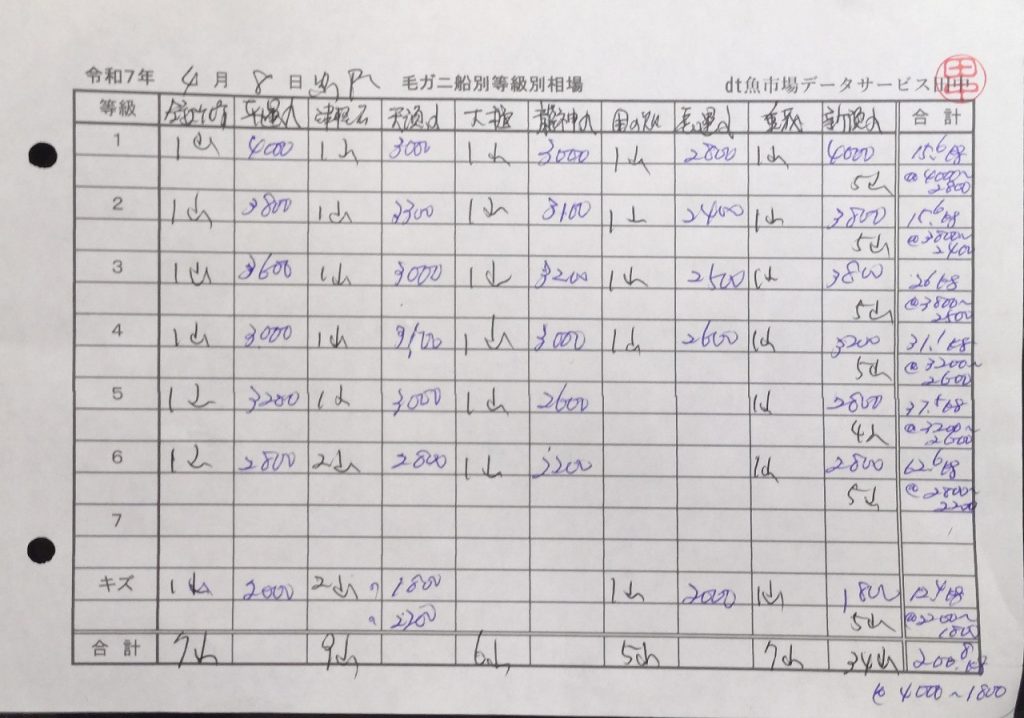 令和7年 4月 8日 毛ガニ船別等級別相場 dt魚市場データサービス田中
等級 天漁丸 大槌 龍神丸 重茂 新漁丸 合計
1 1山 4000 1山 3000 1山 3000 1山 2800 1山 4000 15.6kg
5山 @4000~2800
2 1山 3800 1山 3300 1山 3100 1山 2400 1山 3800 15.6kg
5山 @3800~2400
3 1山 3600 1山 3000 1山 3200 1山 2500 1山 3800 26kg
5山 @3800~2500
4 1山 3000 1山 1山 3000 1山 2600 1山 3200 31.1kg
5山 @3200~2600
5 1山 3200 1山 3000 1山 2600 1山 2800 37.5kg
4山 @3200~2600
6 1山 2800 2山 2800 1山 1山 2800 62.6kg
5山 @2800~2200
7
キズ 1山 2000 2山 1800 1山 2000 1山 1800 12.4kg
2200 5山 @2200~1800
合計 7山 9山 6山 5山 7山 34山 200.8kg
@4000~1800